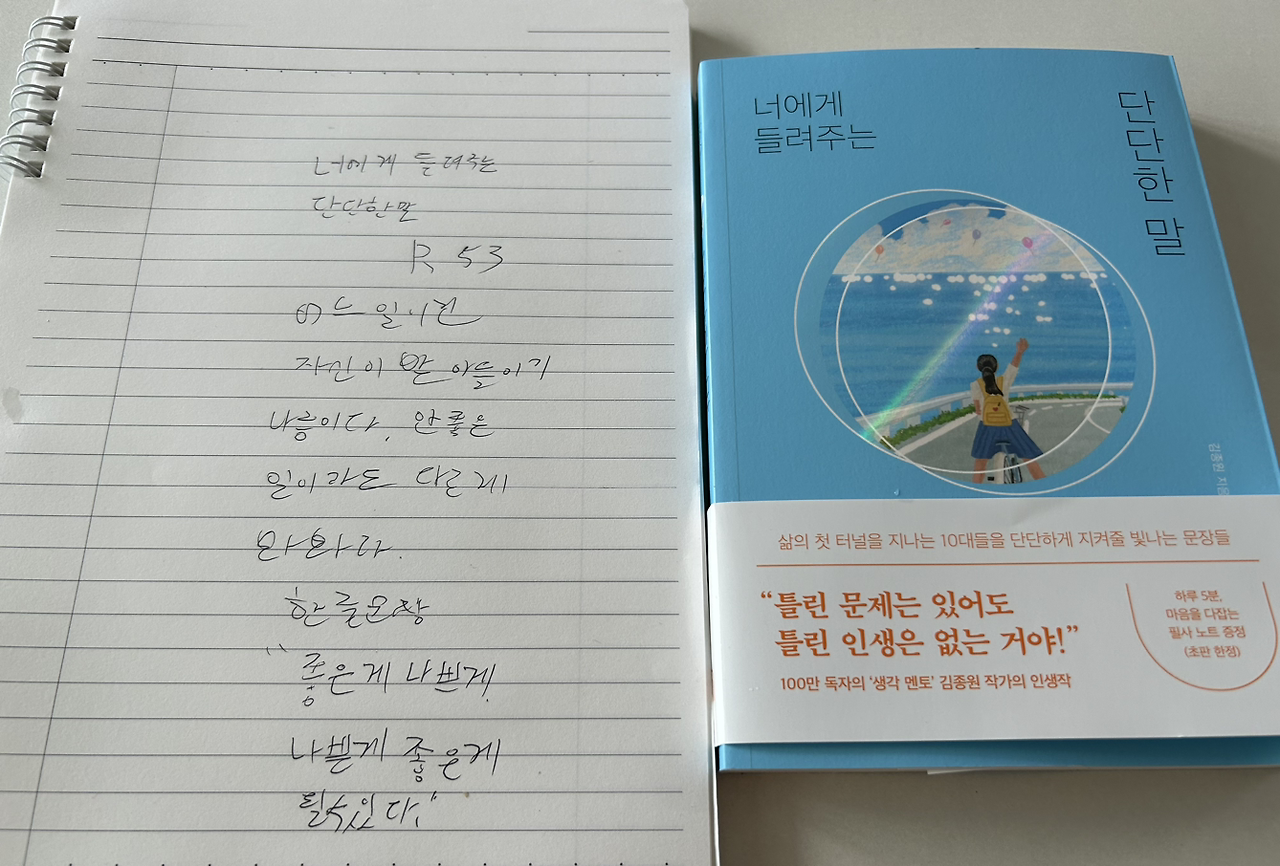 너에게 들려주는
단단한말
R 53
어느 일이건
자신이 받아들이기
나름이다. 안좋은
일이라도 다르게
봐봐라.
한줄문장
"좋은게 나쁜게
나쁜게 좋은게
될수있다."
너에게
들려주는
단단한 말
김종원 지음
삶의 첫 터널을 지나는 10대들을 단단하게 지켜줄 빛나는 문장들
“틀린 문제는 있어도
틀린 인생은 없는 거야!”
100만 독자의 ‘생각 멘토’ 김종원 작가의 인생작
하루 5분,
마음을 다잡는
필사 노트 증정
(초판 한정)